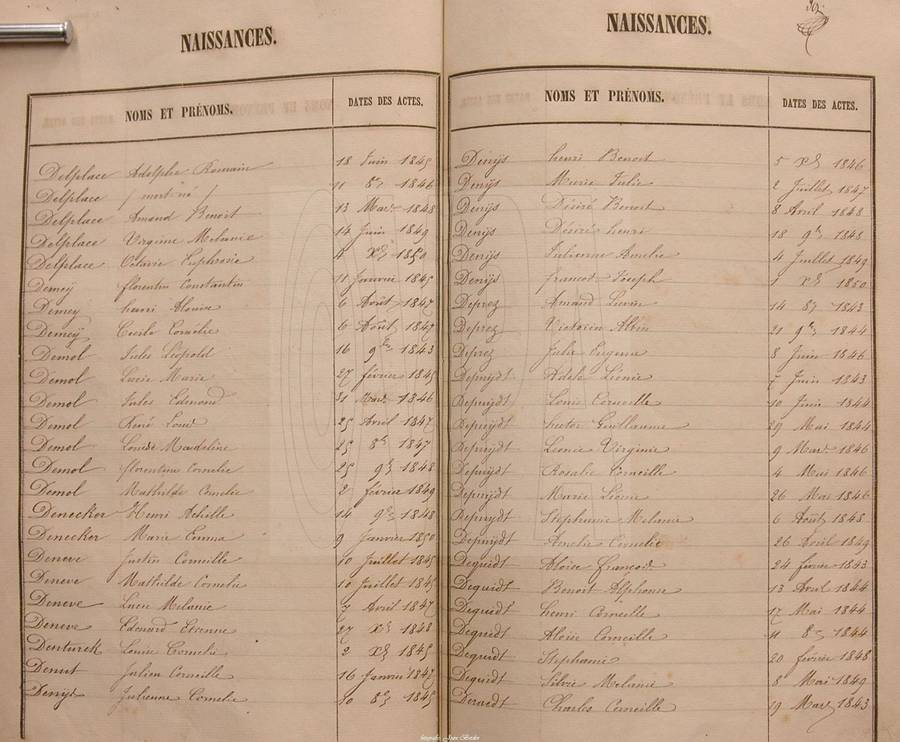 NAISSANCES.
NOMS ET PRÉNOMS. DATES DES ACTES.
Delplace Adolphe Romain 18 Juin 1845
Delplace / mort né / 11 8re 1846
Delplace Amand Benoit 13 Mars 1848
Delplace Virginie Melanie 14 Juin 1849
Delplace Octavie Euphrosie 4 xre 1850
Demeij florentin Constantin 11 Janvier 1845
Demey henri Aloise 6 Août 1847
Demeij Cecile Cornélie 6 Août 1847
Demol Jules Léopold 16 9re 1843
Demol Lucie Marie 27 février 1845
Demol Jules Edmond 31 Mars 1846
Demol René Louis 25 Avril 1847
Demol Louise Madeline 25 8re 1847
Demol florentine Cornelie 25 9re 1848
Demol Mathilde Cornelie 2 février 1849
Denecker Henri Achille 14 9re 1848
Denecker Marie Emma 9 Janvier 1850
Deneve Justin Corneille 10 Juillet 1845
Deneve Mathilde Cornelie 10 Juillet 1845
Deneve Lucie Melanie 7 Avril 1847
Deneve Edouard Etienne 27 xre 1848
Denturck Louise Cornelie 2 xre 1845
Denut Julien Corneille 16 Janvier 1847
Denys Julienne Cornelie 10 8re 1845
NAISSANCES.
NOMS ET PRÉNOMS. DATES DES ACTES.
Denijs henri Benoit 5 xre 1846
Denijs Marie Julie 2 Juillet 1847
Denijs Désiré Benoit 8 Avril 1848
Denijs Désiré henri 18 9re 1848
Denijs Julienne Amelie 4 Juillet 1849
Denijs francois Joseph 1 xre 1850
Deprez Amand Livin 14 8re 1843
Deprez Victorin Albin 21 9re 1844
Deprez Julie Eugenie 8 Juin 1846
Depuijdt Adele Léonie 7 Juin 1843
Depuijdt Louis Corneille 10 Juin 1844
Depuijdt hector Guillaume 29 Mai 1844
Depuijdt Leonie Virginie 9 Mars 1846
Depuijdt Rosalie Corneille 4 Mai 1846
Depuijdt Marie Léonie 26 Mai 1846
Depuijdt Stephanie Melanie 6 Août 1848
Depuijdt Amelie Cornelie 26 Avril 1849
Dequidt Aloise francois 24 fevrier 1843
Dequidt Benoit Alphonse 13 Avril 1844
Dequidt henri Corneille 17 Mai 1844
Dequidt Aloise Corneille 11 8re 1844
Dequidt Stephanie 20 février 1848
Dequidt Silvie Melanie 8 Mai 1849
Deraedt Charles Corneille 19 Mars 1843